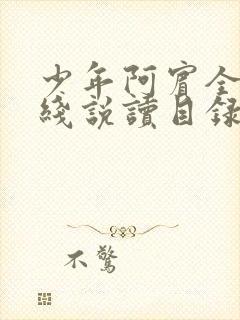 少年阿賓全
綫說讀目錄
不驚